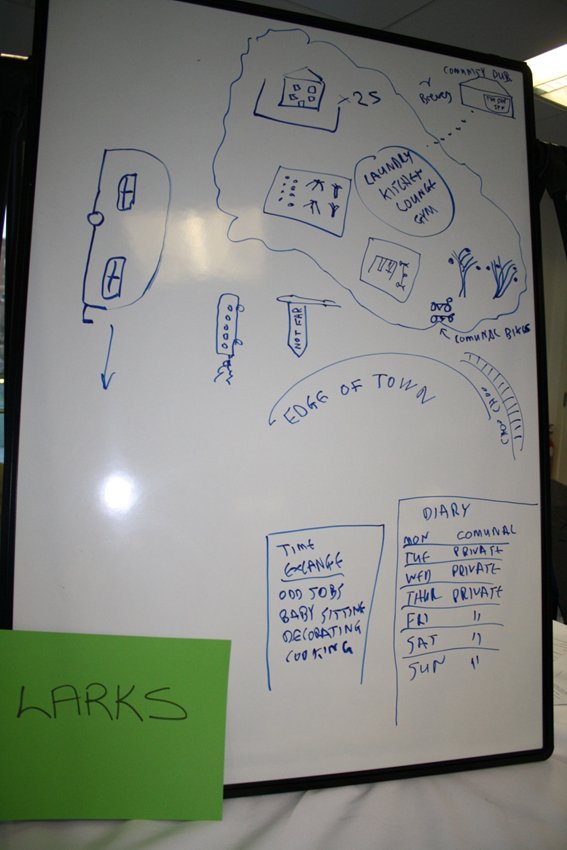 COMMUNITY PUB
x 25
LAUNDRY
KITCHEN
LOUNGE
GYM
COMUNAL BIKES
NOT FAR
EDGE OF TOWN
CHOO CHOO
TIME
EXCANGE
ODD JOBS
BABY SITTING
DECORATING
COOKING
DIARY
MON COMUNAL
TUE PRIVATE
WED PRIVATE
THUR PRIVATE
FRI "
SAT "
SUN "
LARKS